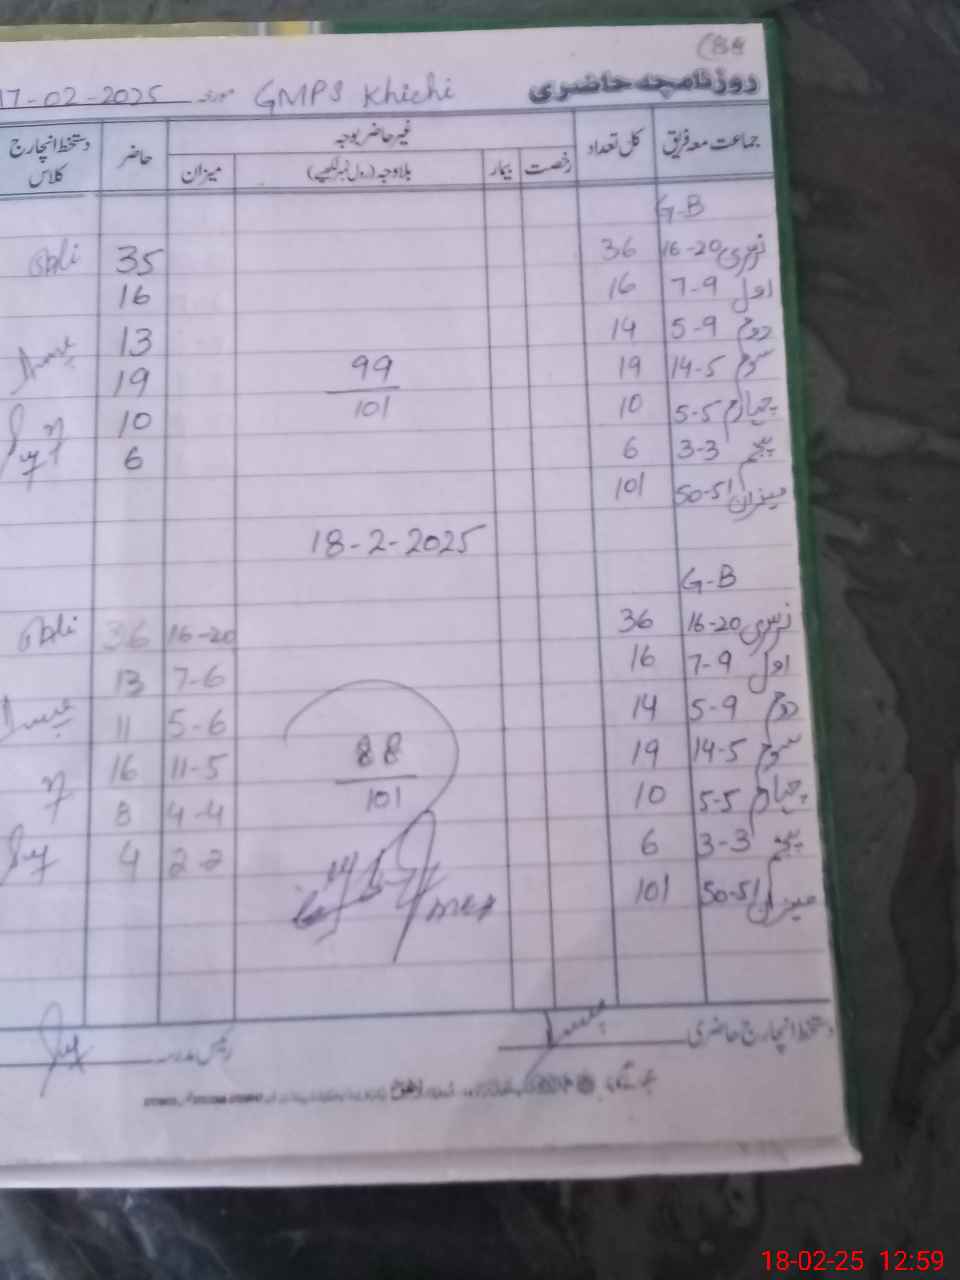 روزنامچہ حاضری GMPS Khichi مورخہ 17-02-2025
جماعت معہ فریق کل تعداد غیر حاضر بوجہ حاضر دستخط انچارج کلاس
رخصت بیمار بلاوجہ (رول نمبر لکھیے) میزان
G-B
نرسری 16-20 36 35
اول 7-9 16 16
دوم 5-9 14 13
سوم 14-5 19 99 19
چہارم 5-5 10 101 10
پنجم 3-3 6 6
میزان 50-51 101
18-2-2025
G-B
نرسری 16-20 36 16-20 36
اول 7-9 16 7-6 13
دوم 5-9 14 5-6 11
سوم 14-5 19 88 11-5 16
چہارم 5-5 10 101 4-4 8
پنجم 3-3 6 2-2 4
میزان 50-51 101
دستخط انچارج حاضری رئیس مدرسہ
18-02-25 12:59